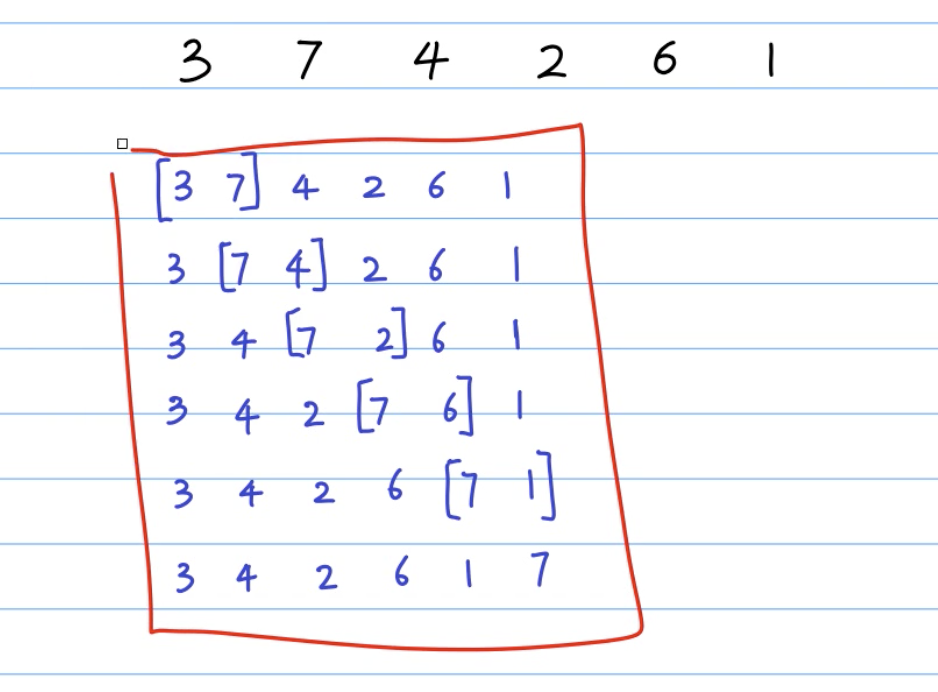 3 7 4 2 6 1
[3 7] 4 2 6 1
3 [7 4] 2 6 1
3 4 [7 2] 6 1
3 4 2 [7 6] 1
3 4 2 6 [7 1]
3 4 2 6 1 7